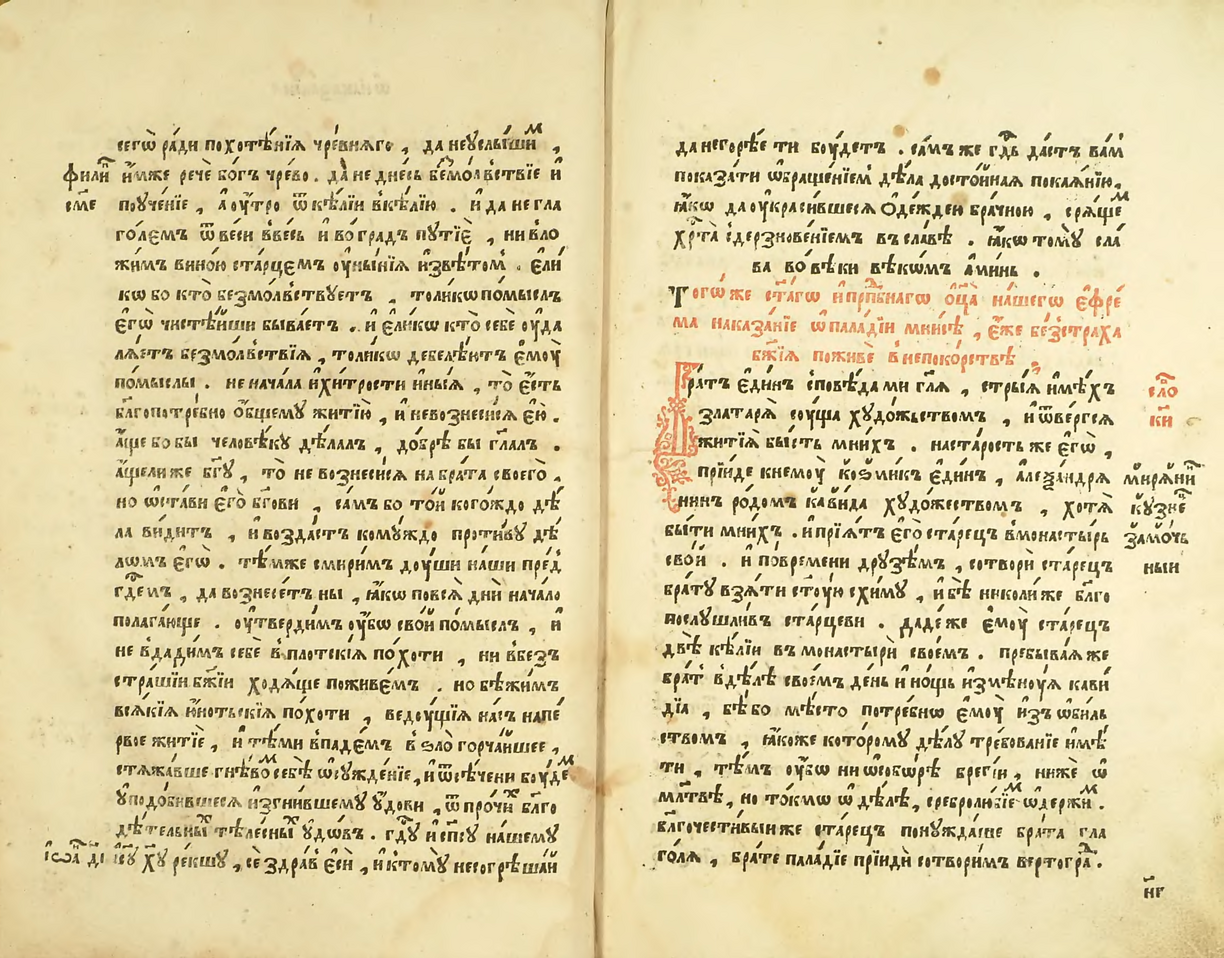 сегѡ̀ ра́ди похотѣ́нїѧ чре́внѧгс , да неꙋслы́шим ,
фили и҆́мже речѐ бо́гъ чре́во . да̀ не дне́сь безмо́лвствїе и҆
сме поꙋче́нїе , а҆ ѹ҆́тро ѿ ке́лїи вке́лїю . и҆ да не гла
го́лемъ ѿ ве́си вве́сь и҆ во гра́дъ пꙋтїѐ , ни вло
жи́мъ вино́ю ста́рцемъ ѹ҆ны́нїѧ и҆звѣ́том . є҆ли́
кѡ бо кто̀ безмо́лвствꙋетъ , толи́кѡ по́мыслъ
є҆гѡ̀ чистѣ́йши быва́етъ . и҆ є҆ли́кѡ кто̀ себѐ ѹ҆да
лѧ́етъ безмо́лвствїѧ , толи́кѡ дебелѣ́итъ є҆мѹ̀
по́мыслы . не нача́ла и҆хи́трости и҆ны́ѧ , то̀ є҆́сть
бл҃гопотре́бно ѻ҆́бщемꙋ житїю̀ , и҆ невознеси́сѧ є҆ю̀ .
а҆́ще бо бы человѣ́кꙋ дѣ́лалъ , до́брѣ бы гл҃алъ .
а҆́щели же бг҃ꙋ , то̀ не возноси́сѧ на бра́та своего̀ ,
но ѡ҆ста́ви є҆го̀ бг҃ови , са́мъ бо то́й когождо дѣ
ла ви́дитъ , и҆ возда́стъ комꙋ́ждо проти́вꙋ дѣ́
лѡмъ є҆гѡ̀ . тѣ́мже смири́мъ дѹ́ши на́ши пре́д
гдемъ , да вознесе́тъ ны , ꙗ҆́кѡ повсѧ̀ дни̑ нача́ло
полага́юще . ѹ҆тверди́мъ ѹ҆́бѡ свой по́мыслъ , и҆
не вдади́мъ себѐ в плотскі́ѧ по́хоти , ни вбезъ
стра́шїи бж҃їи ходѧ́ще пожи́ве́мъ . но бѣжи́мъ
всѧ́кїѧ ю҆́нотьскїѧ по́хоти , ведѹ́щїѧ на́съ напе́
рвое житїѐ , и҆ тѣ́ми впаде́мъ в ѕло̀ горча́йшее ,
стѧжа́вше гнѣ́во себѣ̀ ѡ҆сꙋжде́нїе , и҆ ѿсѣ́чени бѹ́де
ꙋподо́бившесѧ и҆згни́вшемꙋ ꙋ҆́дови , ѿ про́чи бл҃го
дѣ́тельны тѣле́сны ꙋ҆́дѡвъ . гдꙋ и҆ спсꙋ на́шемꙋ
іѡа дı і҆сꙋ хꙋ ре́кшꙋ , се здра́въ є҆сѝ , и҆ ктомꙋ̀ несогрѣша́й
да негорѣ́е ти бѹ́детъ . са́мъ же гдь да́стъ ва́м
показа́ти ѡ҆браще́нїем дѣ́ла досто́йнаѧ покаѧ́нїю ,
ꙗ҆́кѡ да ѹ҆краси́вшесѧ ѻ҆де́ждеи бра́чною , срѧ́ще
хрта̀ сдерзнове́нїемъ въ сла́вѣ . ꙗ҆́кѡ томꙋ̀ сла́
ва во вѣ́ки вѣ́кѡмъ а҆ми́нь .
Тогѡ́же ст҃а́гѡ и҆ прпбнагѡ ѻ҆ца̀ на́шегѡ є҆фре́
ма наказа́нїе ѡ҆ пала́дїи мни́сѣ , є҆́же безстра́ха
бж҃їѧ поживѐ в непоко́рствѣ .
Бра́тъ є҆ди́нъ сповѣ́да ми гл҃ѧ , стры́ѧ и҆мѣ́хъ сло
злата́рѧ сѹ́ща хꙋдо́жьствомъ , и҆ ѿве́ргсѧ ки
житїѧ̀ бы́сть мни́хъ . на ста́рость же є҆гѡ̀ ,
прїи́де кнемѹ̀ ко́смикъ є҆ди́нъ , а҆леѯа́ндрѧ мирѧни́
нинъ ро́домъ кави́да хꙋдо́жествомъ , хотѧ̀ кꙋзне́
бы́ти мни́хъ . и҆ прїѧ́тъ є҆го̀ ста́рецъ вмонасты́рь замо́чь
сво́й . и҆ повре́мени дрꙋзѣ́мъ , сотворѝ ста́рецъ ныи
бра́тꙋ взѧ́ти ст҃ѹ́ю схи́мꙋ , и҆ бѣ̀ николи́же бл҃го
послꙋшли́въ ста́рцеви . даде́же є҆мѹ̀ ста́рецъ
двѣ̀ ке́лїи въ монастырѝ свое́мъ . пребыва́ѧ же
бра́т вдѣ́лѣ свое́мъ де́нь и҆ но́щь и҆змѣнѹ́ѧ кави
дїа , бѣ́ бо мѣ́сто потре́бнѡ є҆мѹ̀ и҆зъ ѡ҆би́ль
ствомъ , ꙗ҆́коже кото́ромꙋ дѣ́лꙋ тре́бованїе и҆мѣ́
ти , тѣ́мъ ѹ҆́бѡ ни ѡ҆собо́рѣ бреги́й , нижѐ ѡ
мл҃твѣ , но то́кмѡ ѡ҆ дѣ́лѣ , сребролю́бїе ѡ҆держи .
бл҃гочести́выиже ста́рецъ понꙋжда́ше бра́та гла
го́лѧ , бра́те пала́дїе прїидѝ сотвори́мъ вертогра .
нг